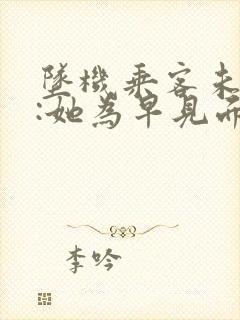 墜機乘客未
:她為早見
李吟